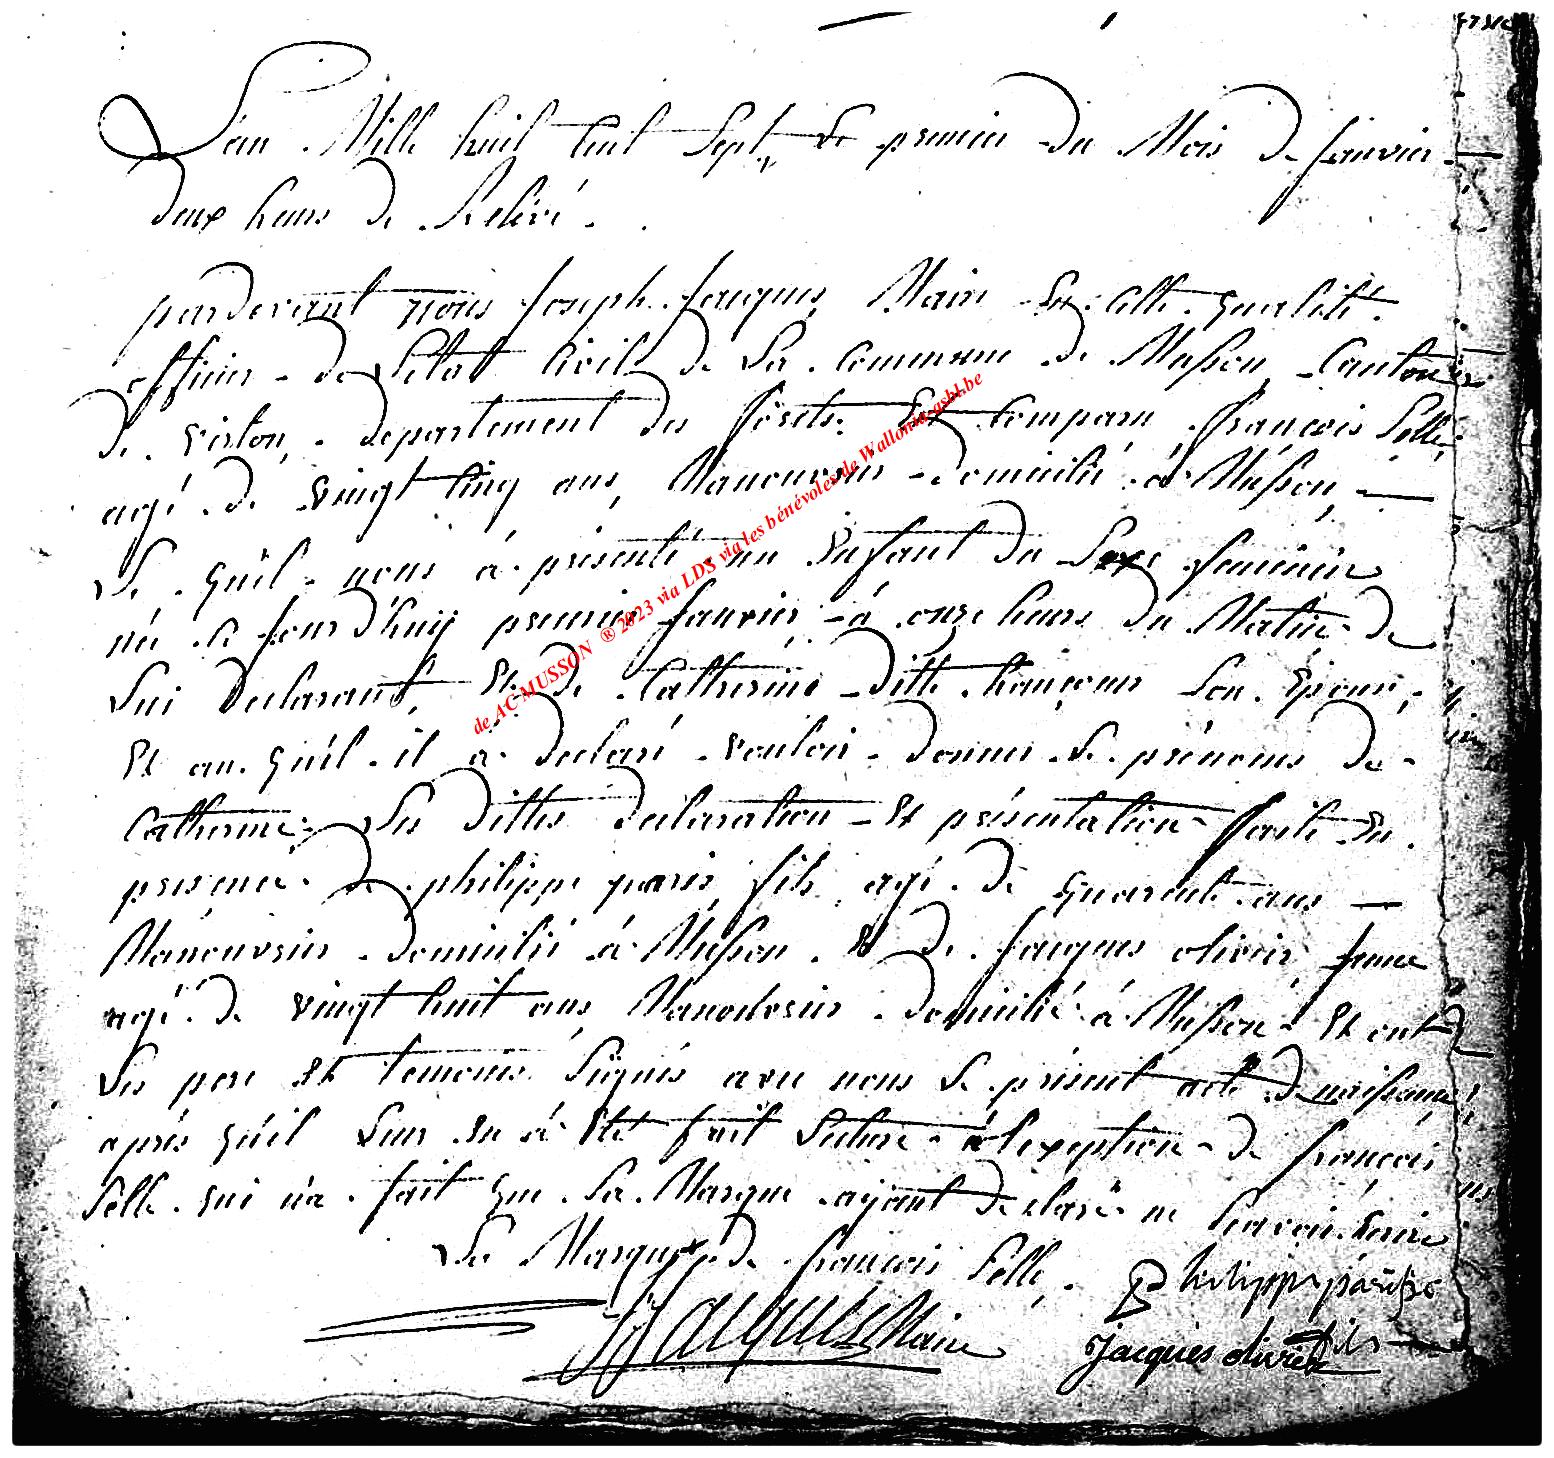 L'an Mille huit Cent Sept, Le premier du Mois de janvier
deux heurs de Relévé.
pardevant nous joseph jacques, Maire En Cette qualité
officier de L'etat Civil de La Commune de Musson, Canton
de virton, departement des forêts. Est Comparu françois Selle,
agé de vingt Cinq ans, Manouvrier domicilié à Musson,
Le quel nous à présenté un Enfant du Sexe feminin
né Ce jourd'huÿ premier janvier à onze heurs du Matin de
Lui declarant, Et de Catherine ditte françois Son Epouse,
Et au quel il à declaré vouloir donner Le prénoms de
Catherine. Les dittes declaration Et présentation faite En
presence de philippe paris, fils, agé de quarente ans
Manouvrier domicilié à Musson. Et de jacques olivier, jeune
agé de vingt huit ans, Manouvrier domicilié à Musson. Et ont
Les pere Et temoins Signés avec nous Le présent acte de naissance
après qu'il Leur En à Eté fait Lecture à l'exeption de françois
Selle qui n'a fait que Sa Marque ayant declaré ne Scavoir Ecrire
La Marque x de françois Selle.
Philippe pari
JJacques Maire
jacques olivie fils
de AC MUSSON ® 2023 via LDS via les bénévoles de Wallonia-asbl.be